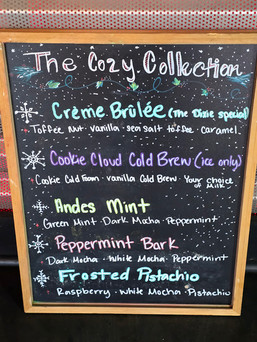 The Cozy Collection
Crème Brûlée (The Dixie special)
Toffee Nut · vanilla · sea salt toffee · caramel
Cookie Cloud Cold Brew (ice only)
Cookie Cold Foam · vanilla Cold Brew · Your choice
of Milk
Andes Mint
Green Mint · Dark Mocha · Peppermint
Peppermint Bark
Dark Mocha · White Mocha · Peppermint
Frosted Pistachio
Raspberry · White Mocha · Pistachio